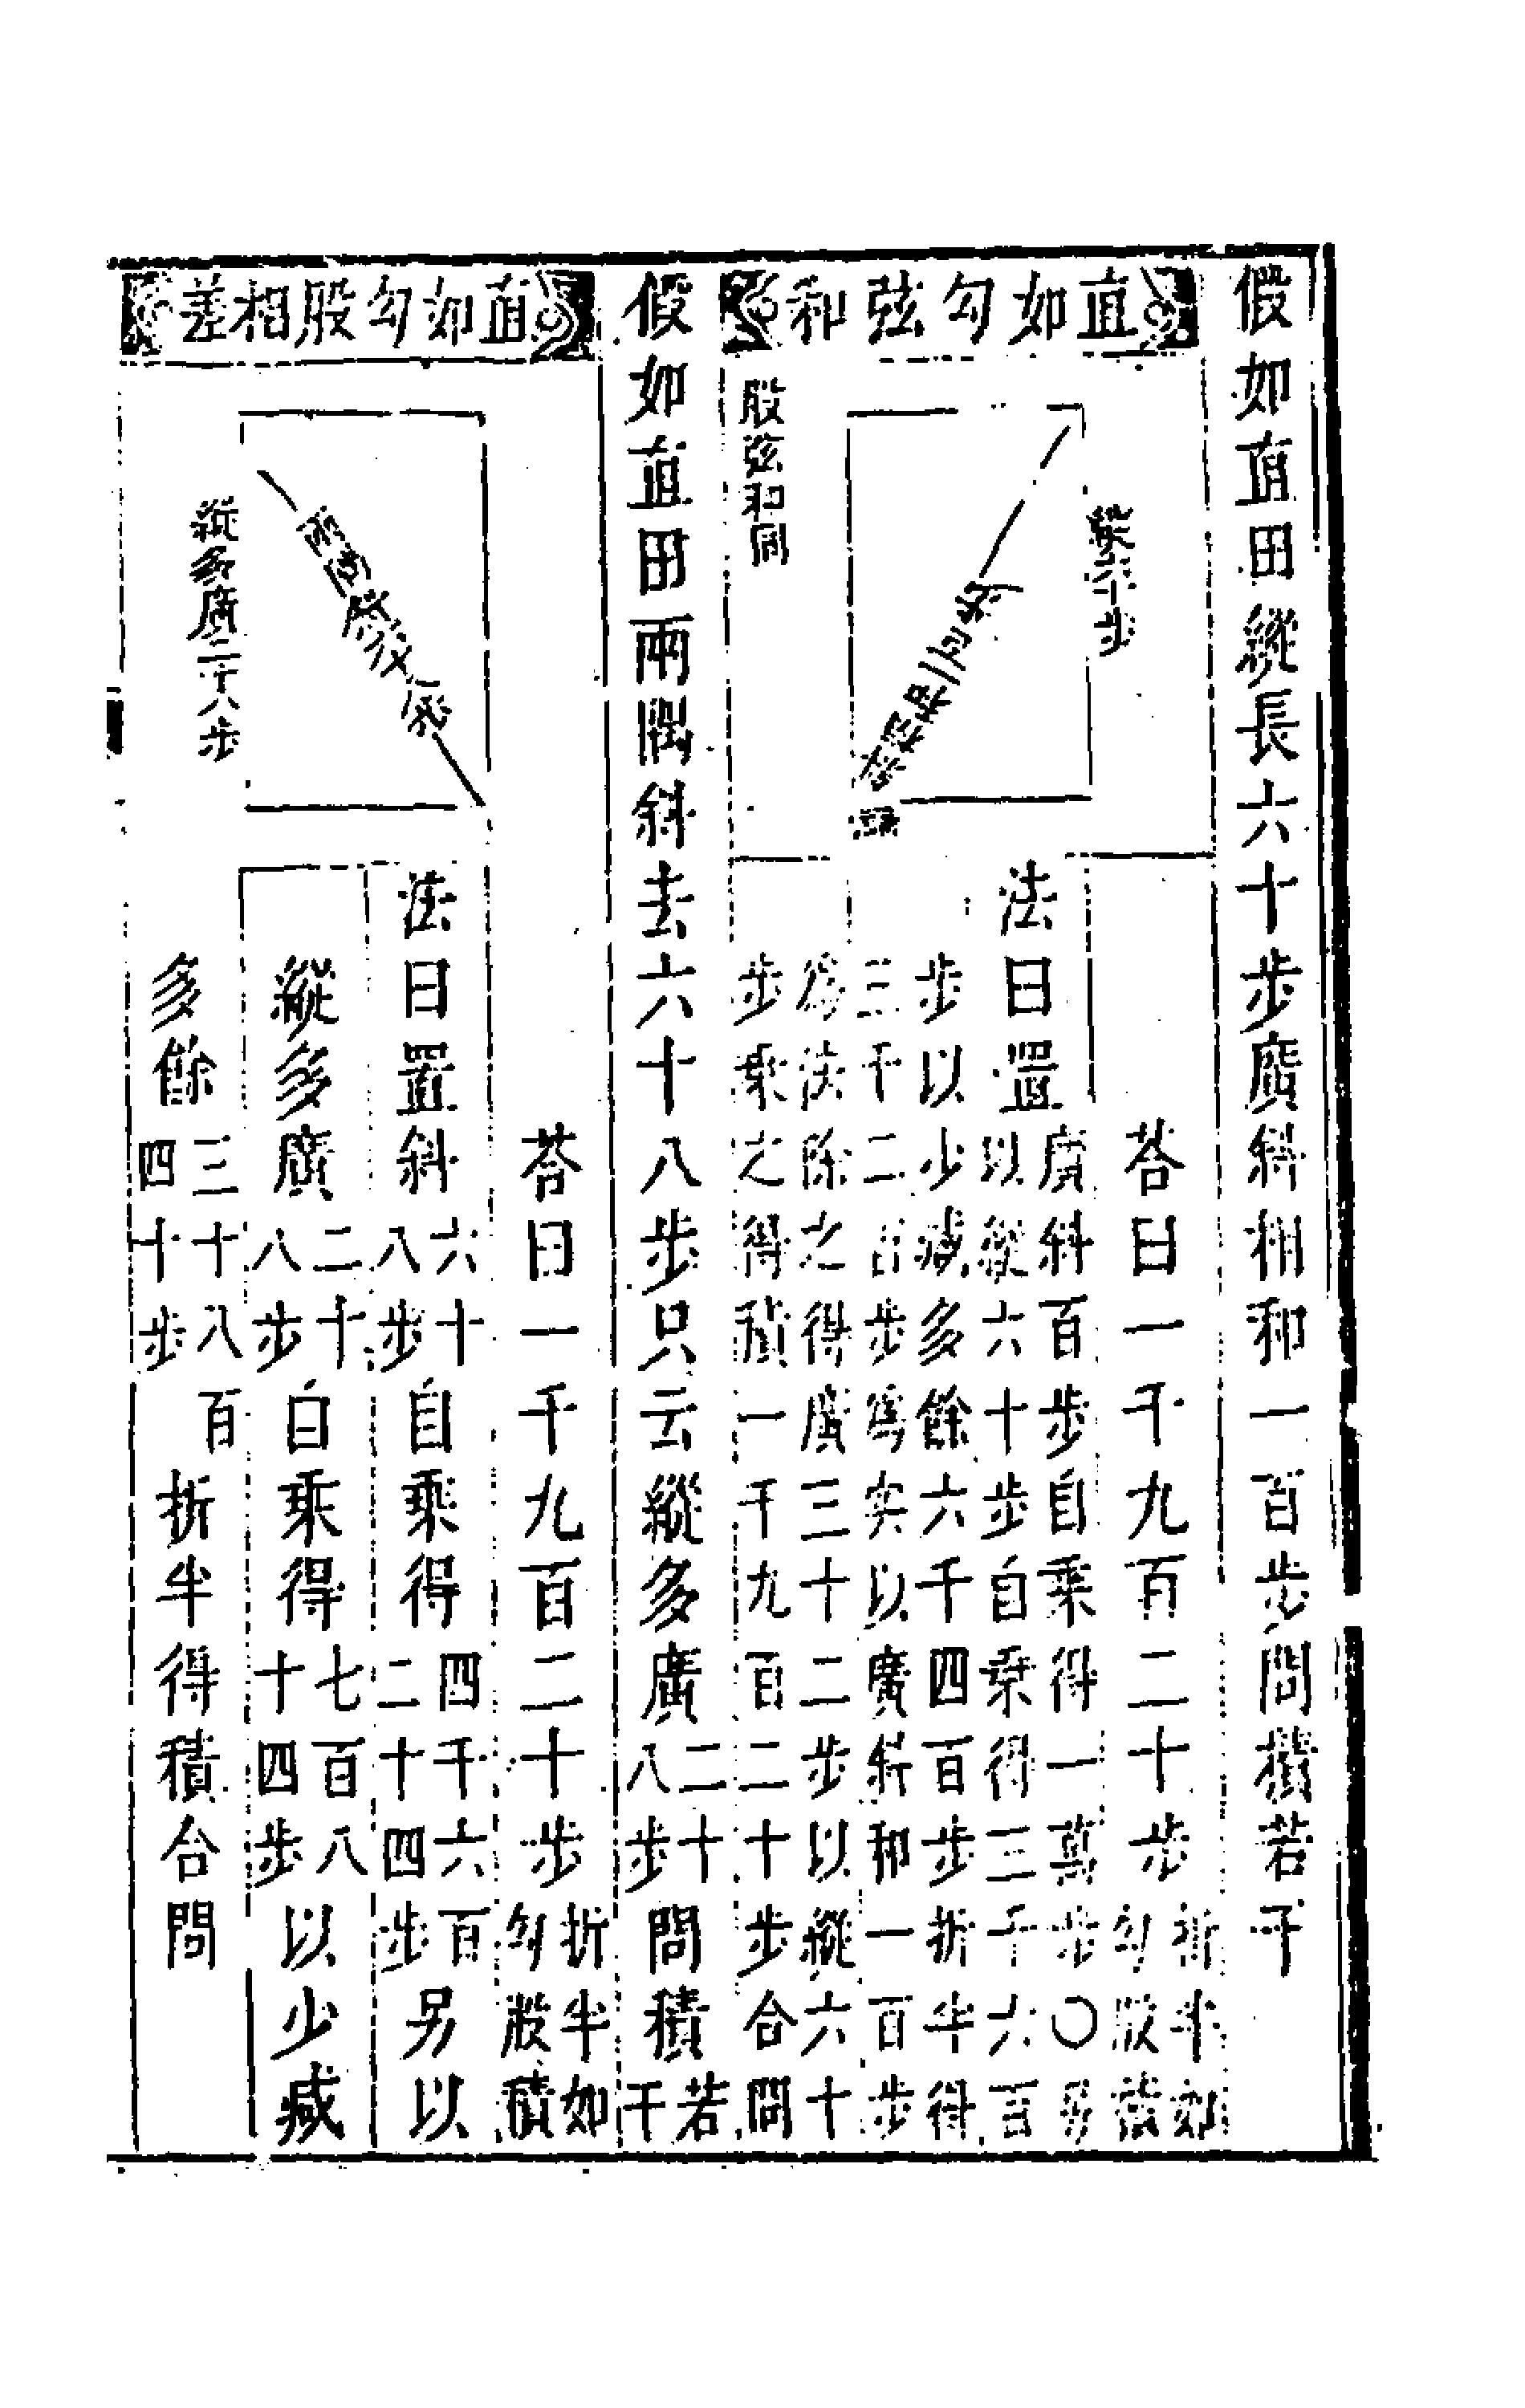 假如直田縱長六十步廣斜相和一百步問積若干
直如勾弦和
縱六十步
股弦和同
荅曰一千九百二十步
折半如
勾股積
法曰置
廣斜百步自乘得一萬步〇另
以縱六十步自乘得三千六百
步以少減多餘六千四百步折半得
三千二百步為实以廣斜和一百步
為法除之得廣三十二步以縱六十
步乘之得積一千九百二十步合問
假如直田兩隅斜去六十八步只云縱多廣二十八步問積若干
直如勾股相差
縱多廣二十八步
荅曰一千九百二十步
折半如
勾股積
法曰置斜六十八步自乘得四千六百二十四步另以
縱多廣二十八步自乘得七百八十四步以少減
多餘三千八百四十步折半得積合問